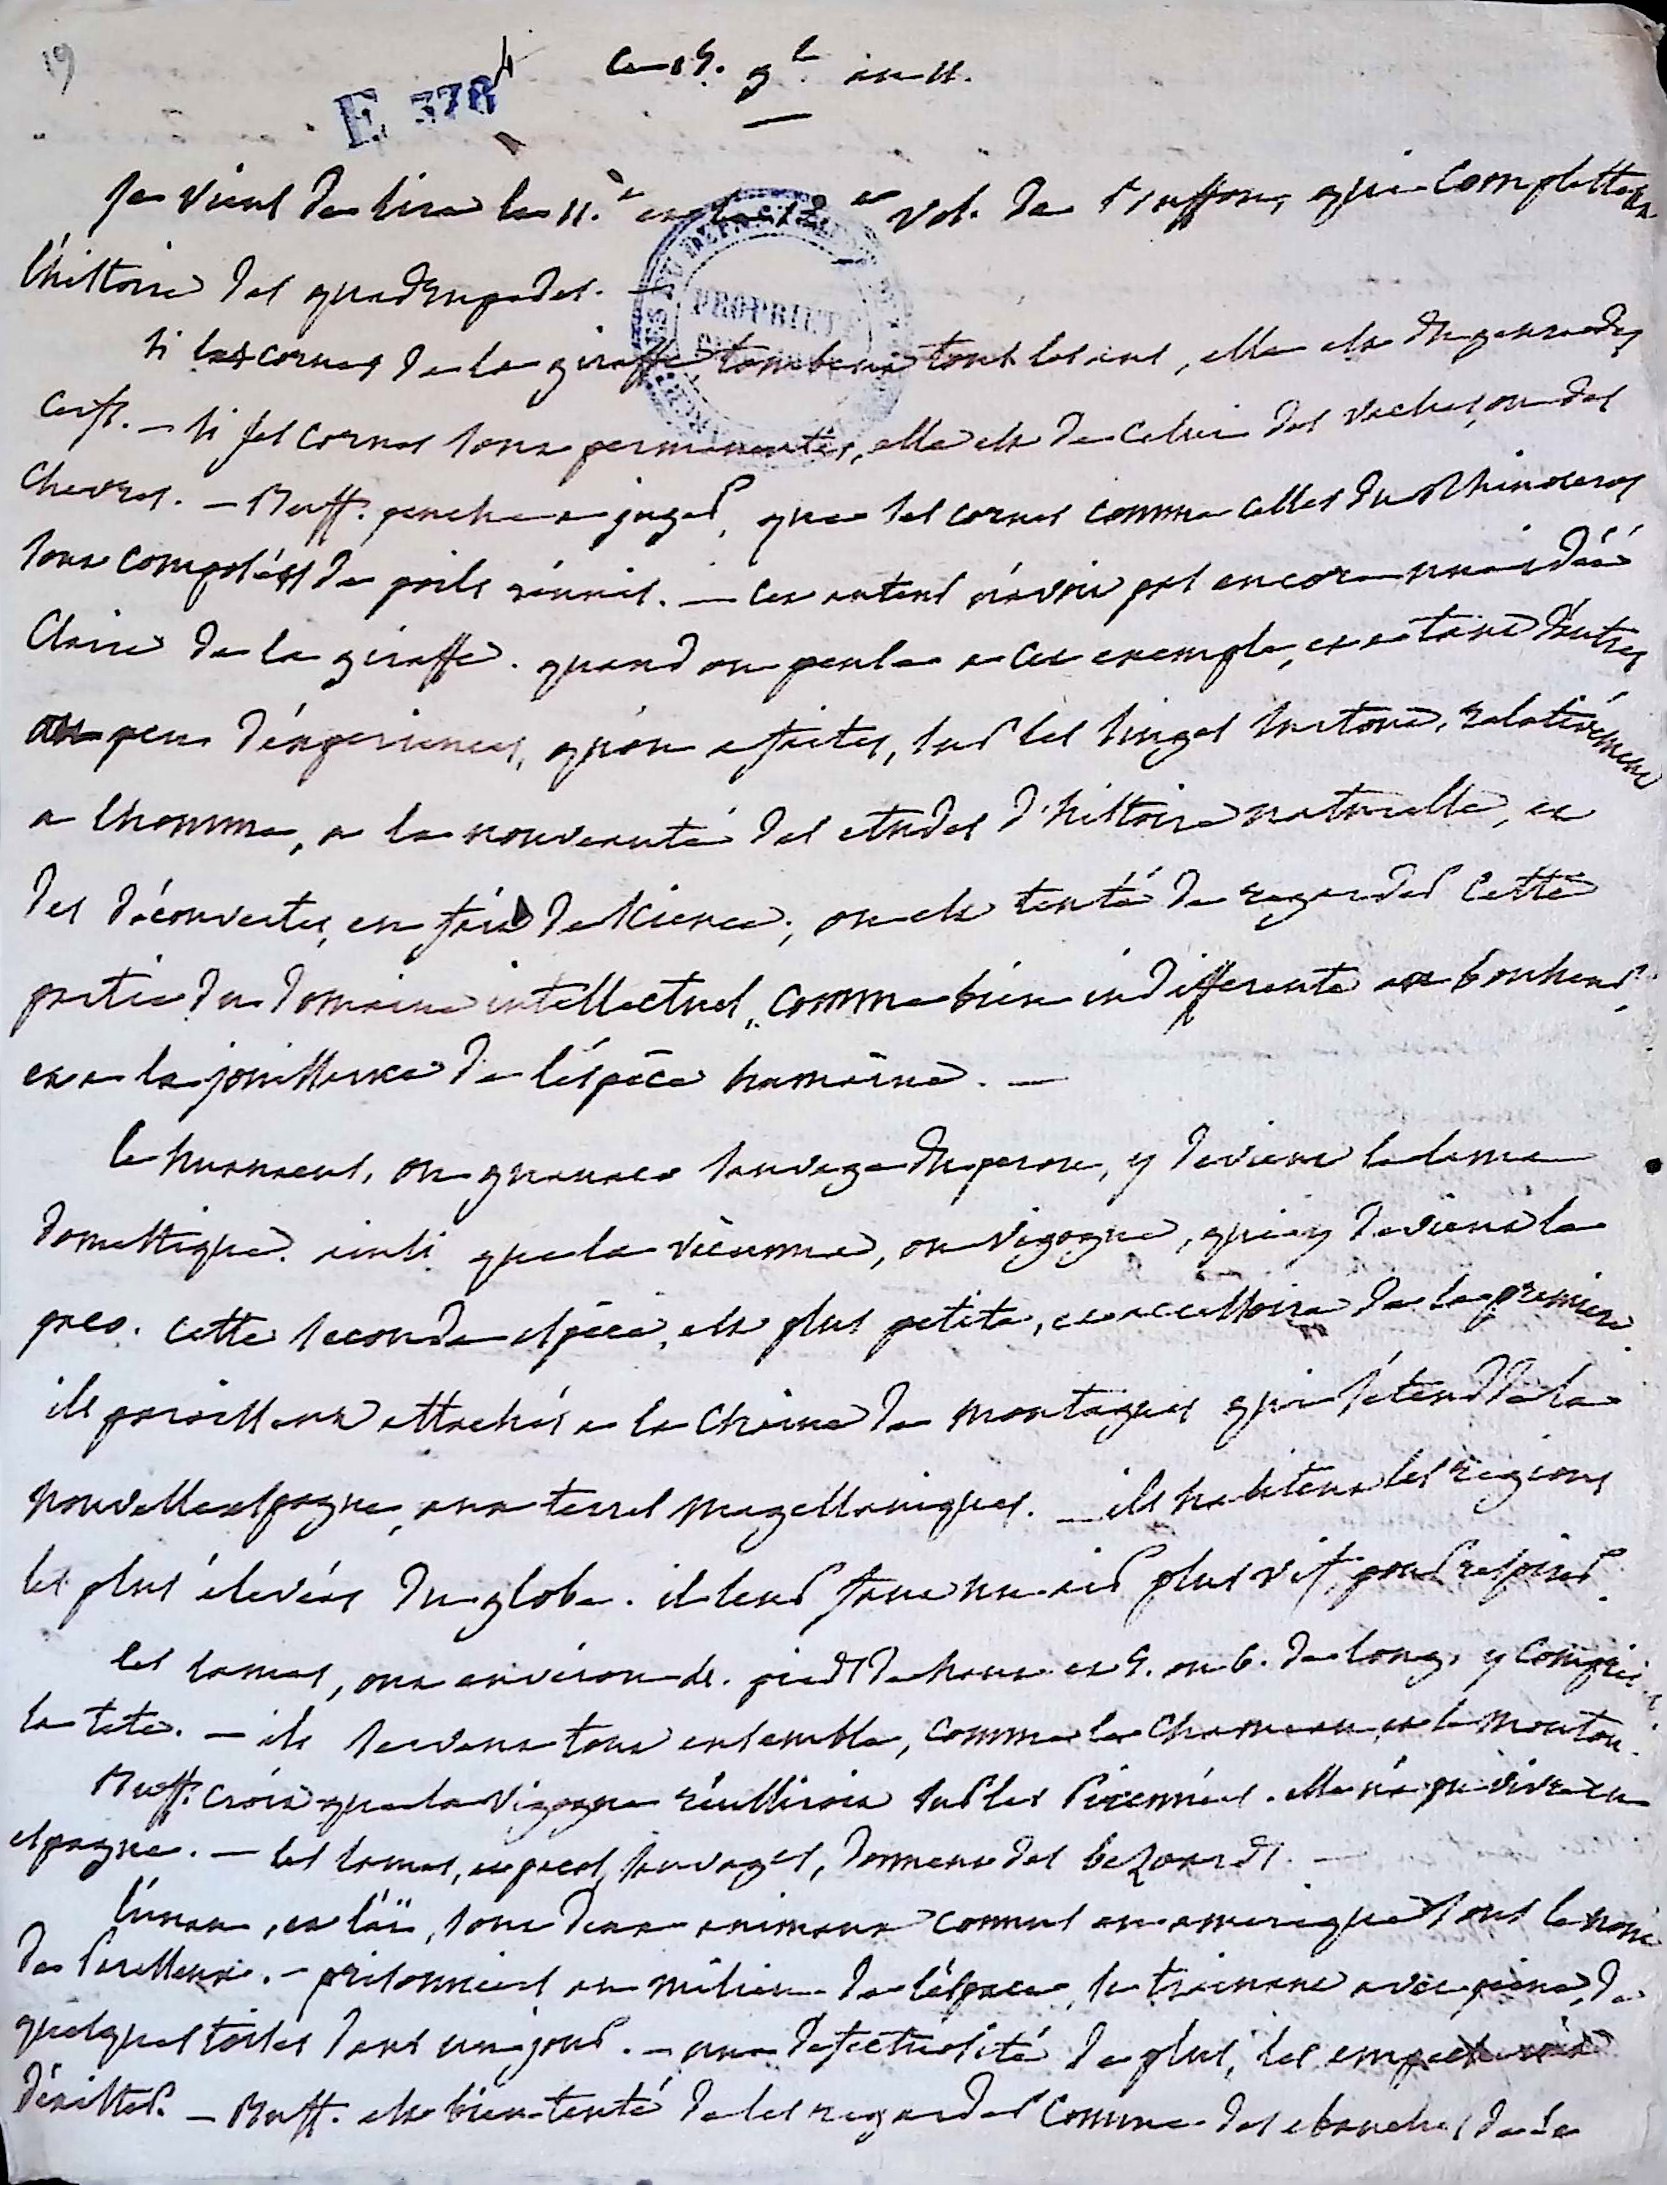 19
E 378 4
Ce 19. 9.bre an 11.
Je viens de lire le 11.e et le 12.e vol. de Buffon, qui complettent
l'histoire des quadrupedes. —
PROPRIÉTÉ
si les cornes de la giraffe tombent tous les ans, elle est du genre des
cerfs. — si ses cornes sont permanentes, elle est de celui des vaches, ou des
chevres. — Buff. penche a juger, que ses cornes comme celles du Rhinoceros
sont composées de poils réunis. — cet auteur n'avoit pas encore une idée
claire de la giraffe. quand on pense a cet exemple, et a tant d'autres
au peu d'éxperiences, qu'on a faites, sur les singes surtout, relativement
a l'homme, a la nouveauté des etudes d'histoire naturelle, et
des découvertes, en fait de science; on est tenté de regarder cette
partie du domaine intellectuel, comme bien indifferente au bonheur,
et a la jouissance de l'éspèce humaine. —
le huanacus, ou guanaco sauvage du perou, y devient le lama
domestique. ainsi que la vicunna, ou vigogne, qui y devient le
paco. cette seconde espèce, est plus petite, et accessoire de la premiere.
ils paroissent attachés a la chaine de montagnes qui s'étend de la
nouvelle espagne, aux terres magellaniques. — ils habitent les regions
les plus élevées du globe. il leur faut un air plus vif, pour respirer.
les lamas, ont environ 4. pieds de haut et 5. ou 6. de long, y compris
la tete. — ils servent tout ensemble, comme le chameau, et le mouton.
Buff. croit que la vigogne réussiroit sur les Pirennées. elle n'a pu vivre en
espagne. — les lamas, et pacos sauvages, donnent des bezoards. —
l'unau, et l'aï, sont deux animaux connus en amerique sous le nom
de Paresseux. — prisonniers au milieu de l'éspace, se trainant avec peine, de
quelques toises dans un jour. — une defectuosité de plus, les empecheroit
d'éxister. — Buff. est bien tenté de les regarder comme des ebauches de la